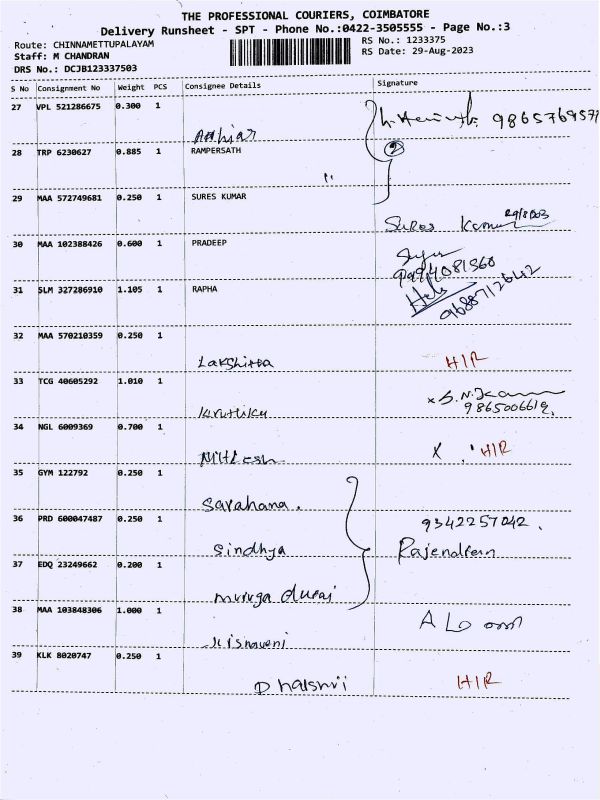 THE PROFESSIONAL COURIERS, COIMBATORE
Delivery Runsheet - SPT - Phone No.:0422-3505555 - Page No.:3
Route: CHINNAMETTUPALAYAM
RS No.: 1233375
Staff: M CHANDRAN
RS Date: 29-Aug-2023
DRS No.: DCJB123337503
S No Consignment No Weight PCS Consignee Details Signature
27 VPL 521286675 0.300 1 9865769571
28 TRP 6230627 0.885 1 RAMPERSATH
29 MAA 572749681 0.250 1 SURES KUMAR
Sures Kumar
30 MAA 102388426 0.600 1 PRADEEP
31 SLM 327286910 1.105 1 RAPHA
9688712642
32 MAA 570210359 0.250 1
Lakshitha HIR
33 TCG 40605292 1.010 1
Kruthiku 9865006619.
34 NGL 6009369 0.700 1
Nithesh X HIR
35 GYM 122792 0.250 1
Sarahana.
36 PRD 600047487 0.250 1 9342257042.
Sindhya Rajendran
37 EDQ 23249662 0.200 1
muruga durai
38 MAA 103848306 1.000 1
39 KLK 8020747 0.250 1
Dhalshri HIR